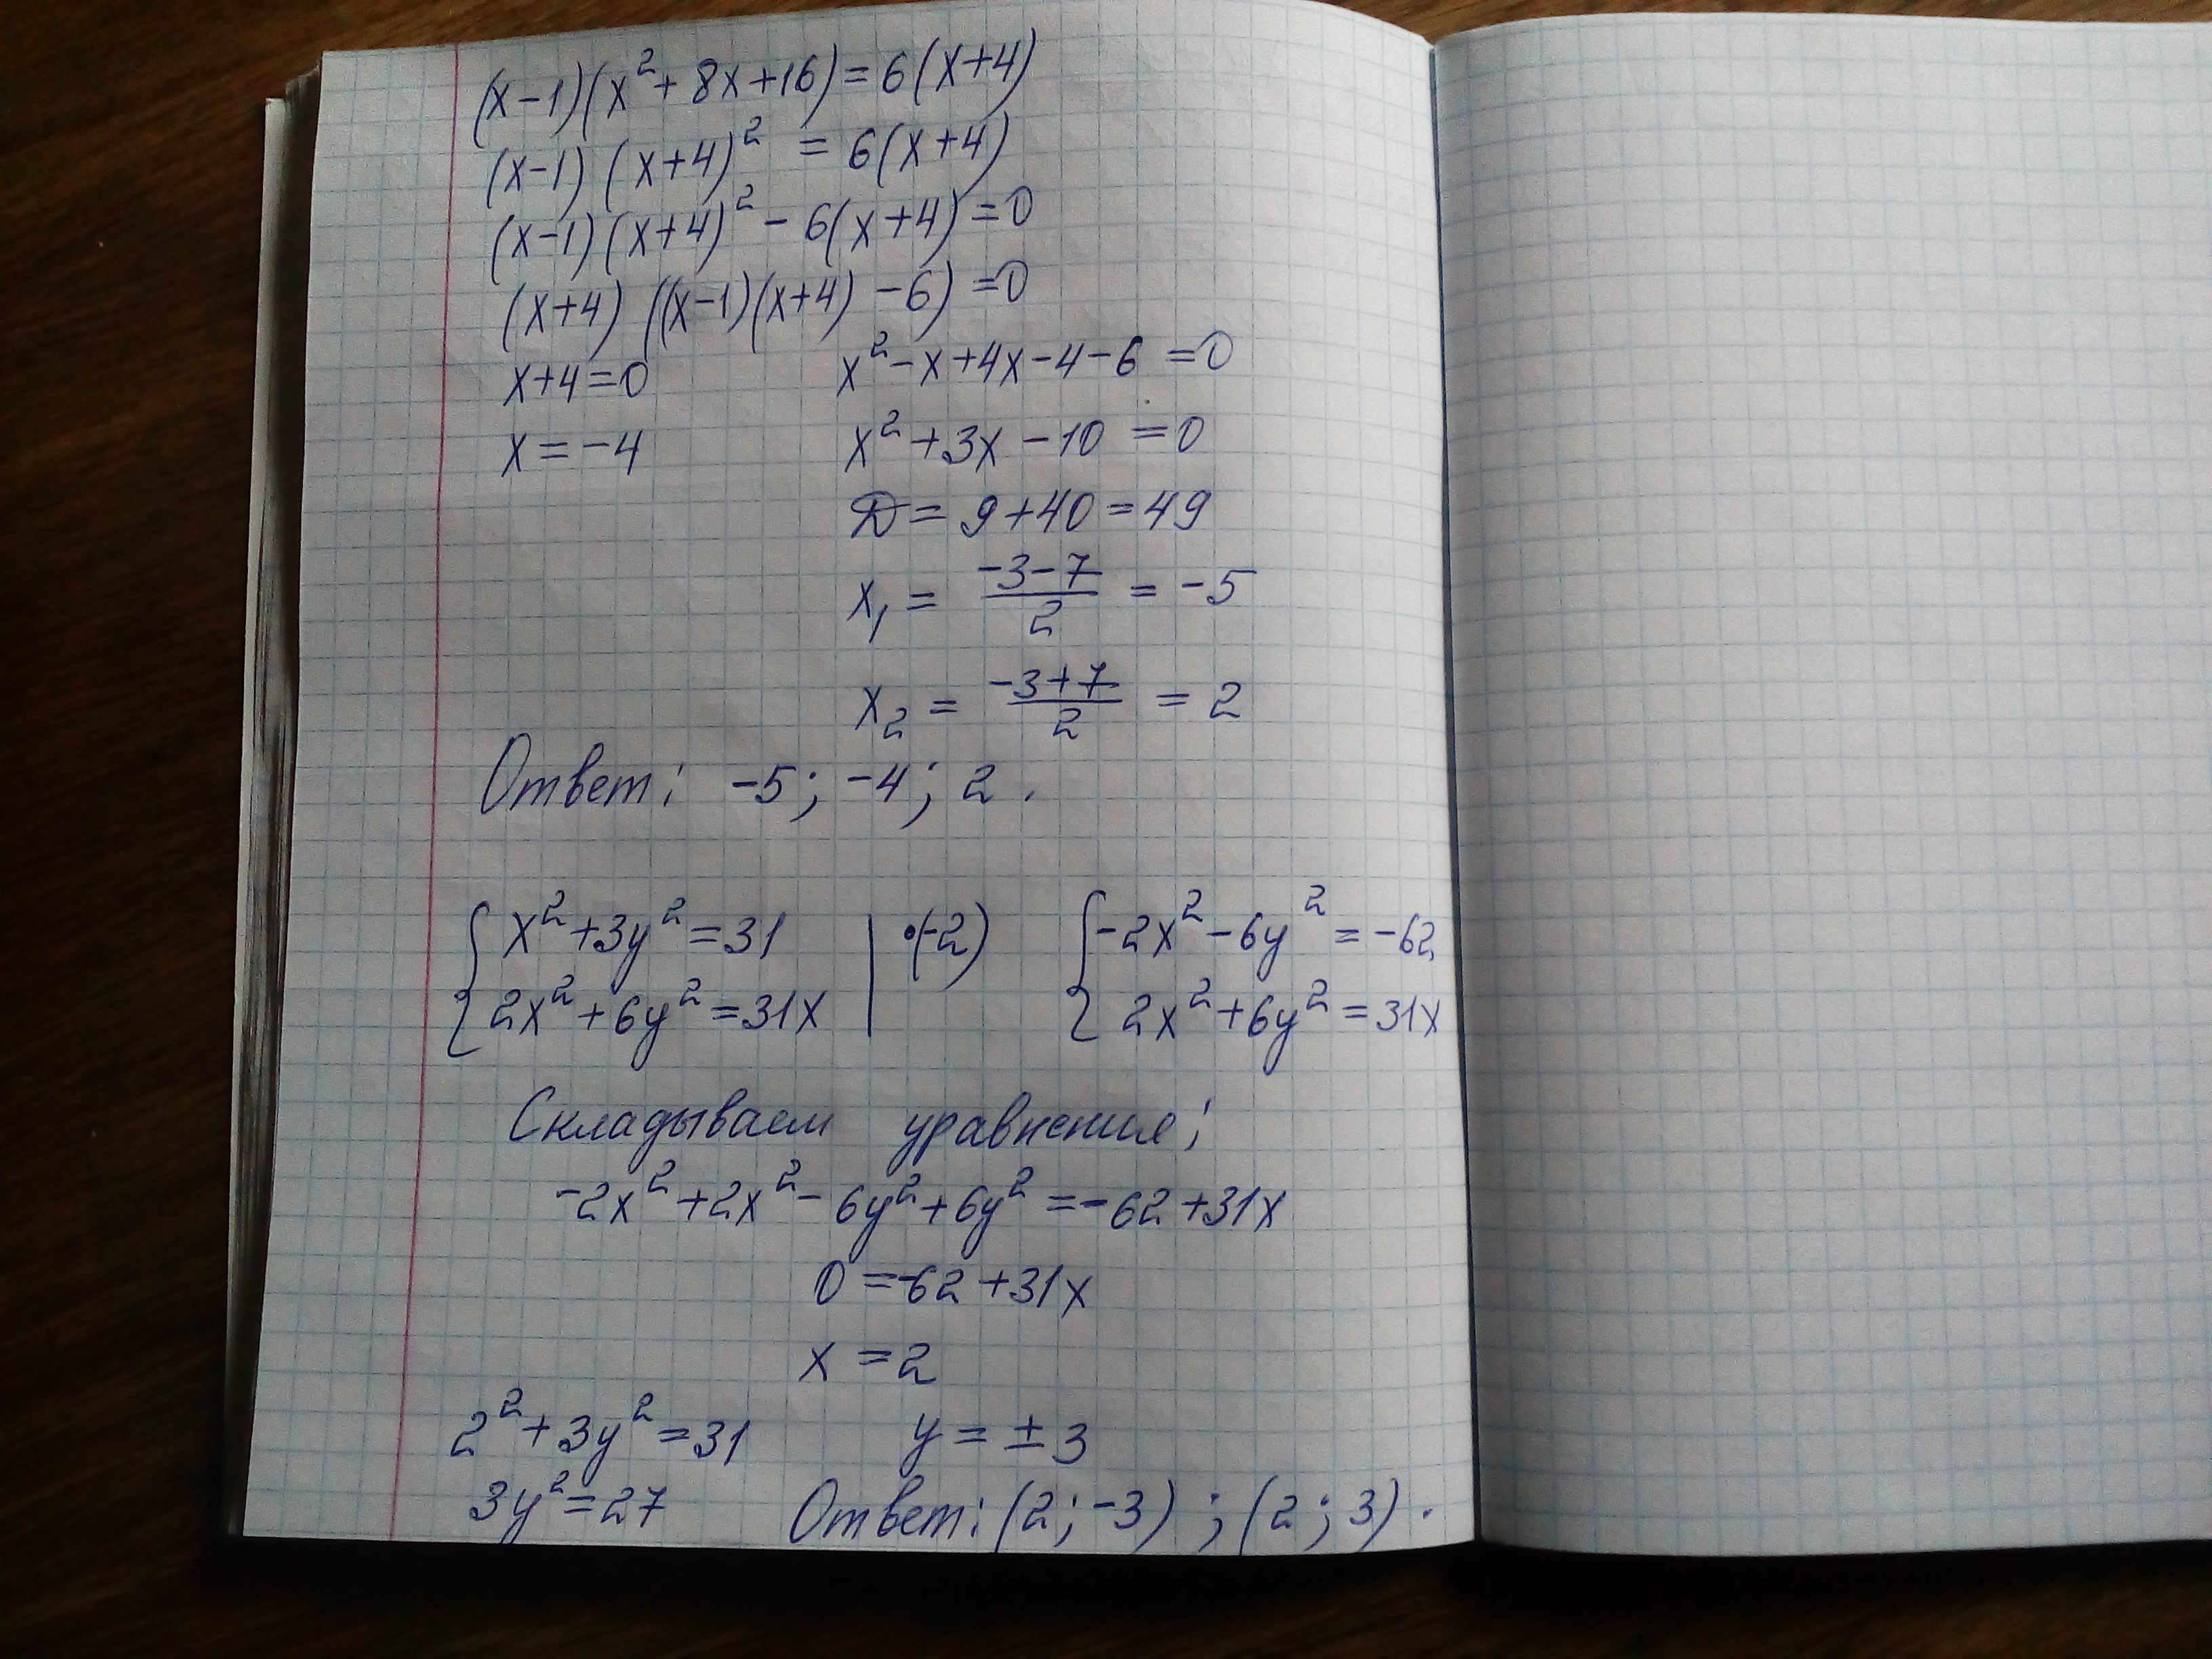 (x-1)(x²+8x+16)=6(x+4)
(x-1)(x+4)²=6(x+4)
(x-1)(x+4)²-6(x+4)=0
(x+4)((x-1)(x+4)-6)=0
x+4=0 x²-x+4x-4-6=0
x=-4 x²+3x-10=0
D=9+40=49
x₁=(-3-7)/2=-5
x₂=(-3+7)/2=2
Ответ: -5; -4; 2.
{x²+3y²=31 | ·(-2) {-2x²-6y²=-62
2x²+6y²=31x 2x²+6y²=31x
Складываем уравнения:
-2x²+2x²-6y²+6y²=-62+31x
0=-62+31x
x=2
2²+3y²=31 y=±3
3y²=27 Ответ: (2;-3); (2;3).